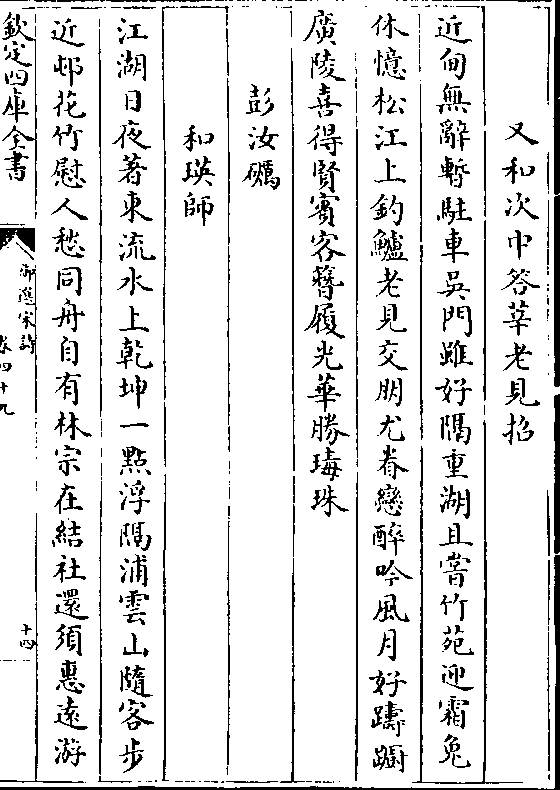 又和次中答莘老見招
近甸無辭暫駐車吳門雖好隔重湖且嘗竹苑迎霜兔
休憶松江上釣鱸老見交朋尤眷戀醉吟風月好躊躕
廣陵喜得賢賓客簪履光華勝瑇珠
彭汝礪
和瑛師
江湖日夜著東流水上乾坤一點浮隔浦雲山隨客步
近邨花竹慰人愁同舟自有林宗在結社還須惠遠游
欽定四庫全書
御選宋詩
卷四十九
十四